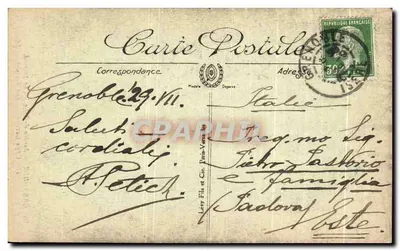 Carte Postale
Correspondance
Adresse
GRENOBLE
Grenoble 29.VII.
Saluti
cordiali
A. Petich
Italie
Preg.mo Sig.
Pietro Pastorio
e famiglia
(Padova) Este
Lévy Fils et Cie, Paris
CPARAMA